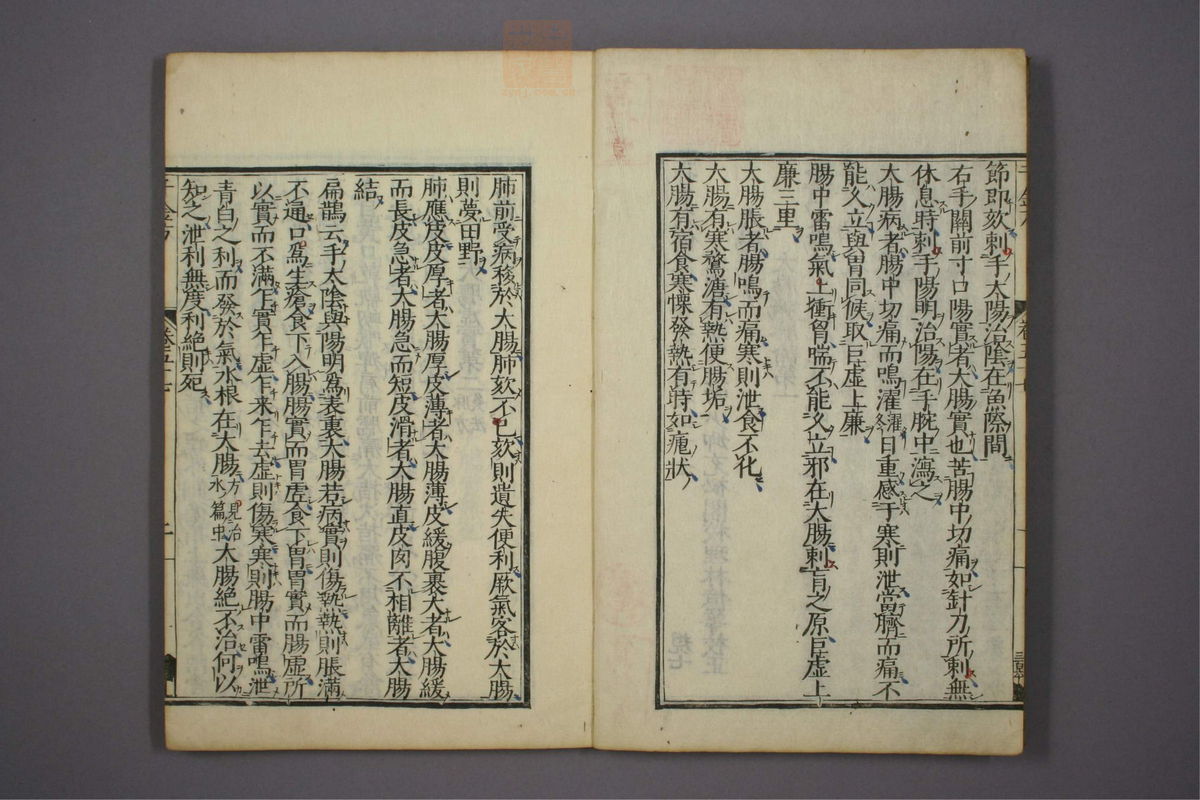 節即欬刺手太陽治陰在魚際間
右手關前寸口陽實者大腸實也苦腸中切痛如針刀所刺無
休息時刺手陽明治陽在手腕中瀉之
大腸病者腸中切痛而鳴濯濯冬日重感于寒則泄當臍而痛不
能久立與胃同候取巨虛上廉
腸中雷鳴氣上衝胷喘不能久立邪在大腸刺肓之原巨虛上
廉三里
大腸脹者腸鳴而痛寒則泄食不化
大腸有寒鶩溏有熱便腸垢
大腸有宿食寒慄發熱有時如瘧狀
肺前受病移於大腸肺欬不已欬則遺失便利厥氣客於大腸
則夢田野
肺應皮皮厚者大腸厚皮薄者大腸薄皮緩腹裹大者大腸緩
而長皮急者大腸急而短皮滑者大腸直皮肉不相離者大腸
結
扁鵲云手太陰與陽明爲表裏大腸若病實則傷熱熱則脹滿
不通口爲生瘡食下入腸腸實而胃虛食下胃胃實而腸虛所
以實而不滿乍實乍虛乍来乍去虛則傷寒寒則腸中雷鳴泄
青白之利而發於氣水根在大腸方見治水篇中大腸絶不治何以
知之泄利無度利絶則死
千金方
卷五十七